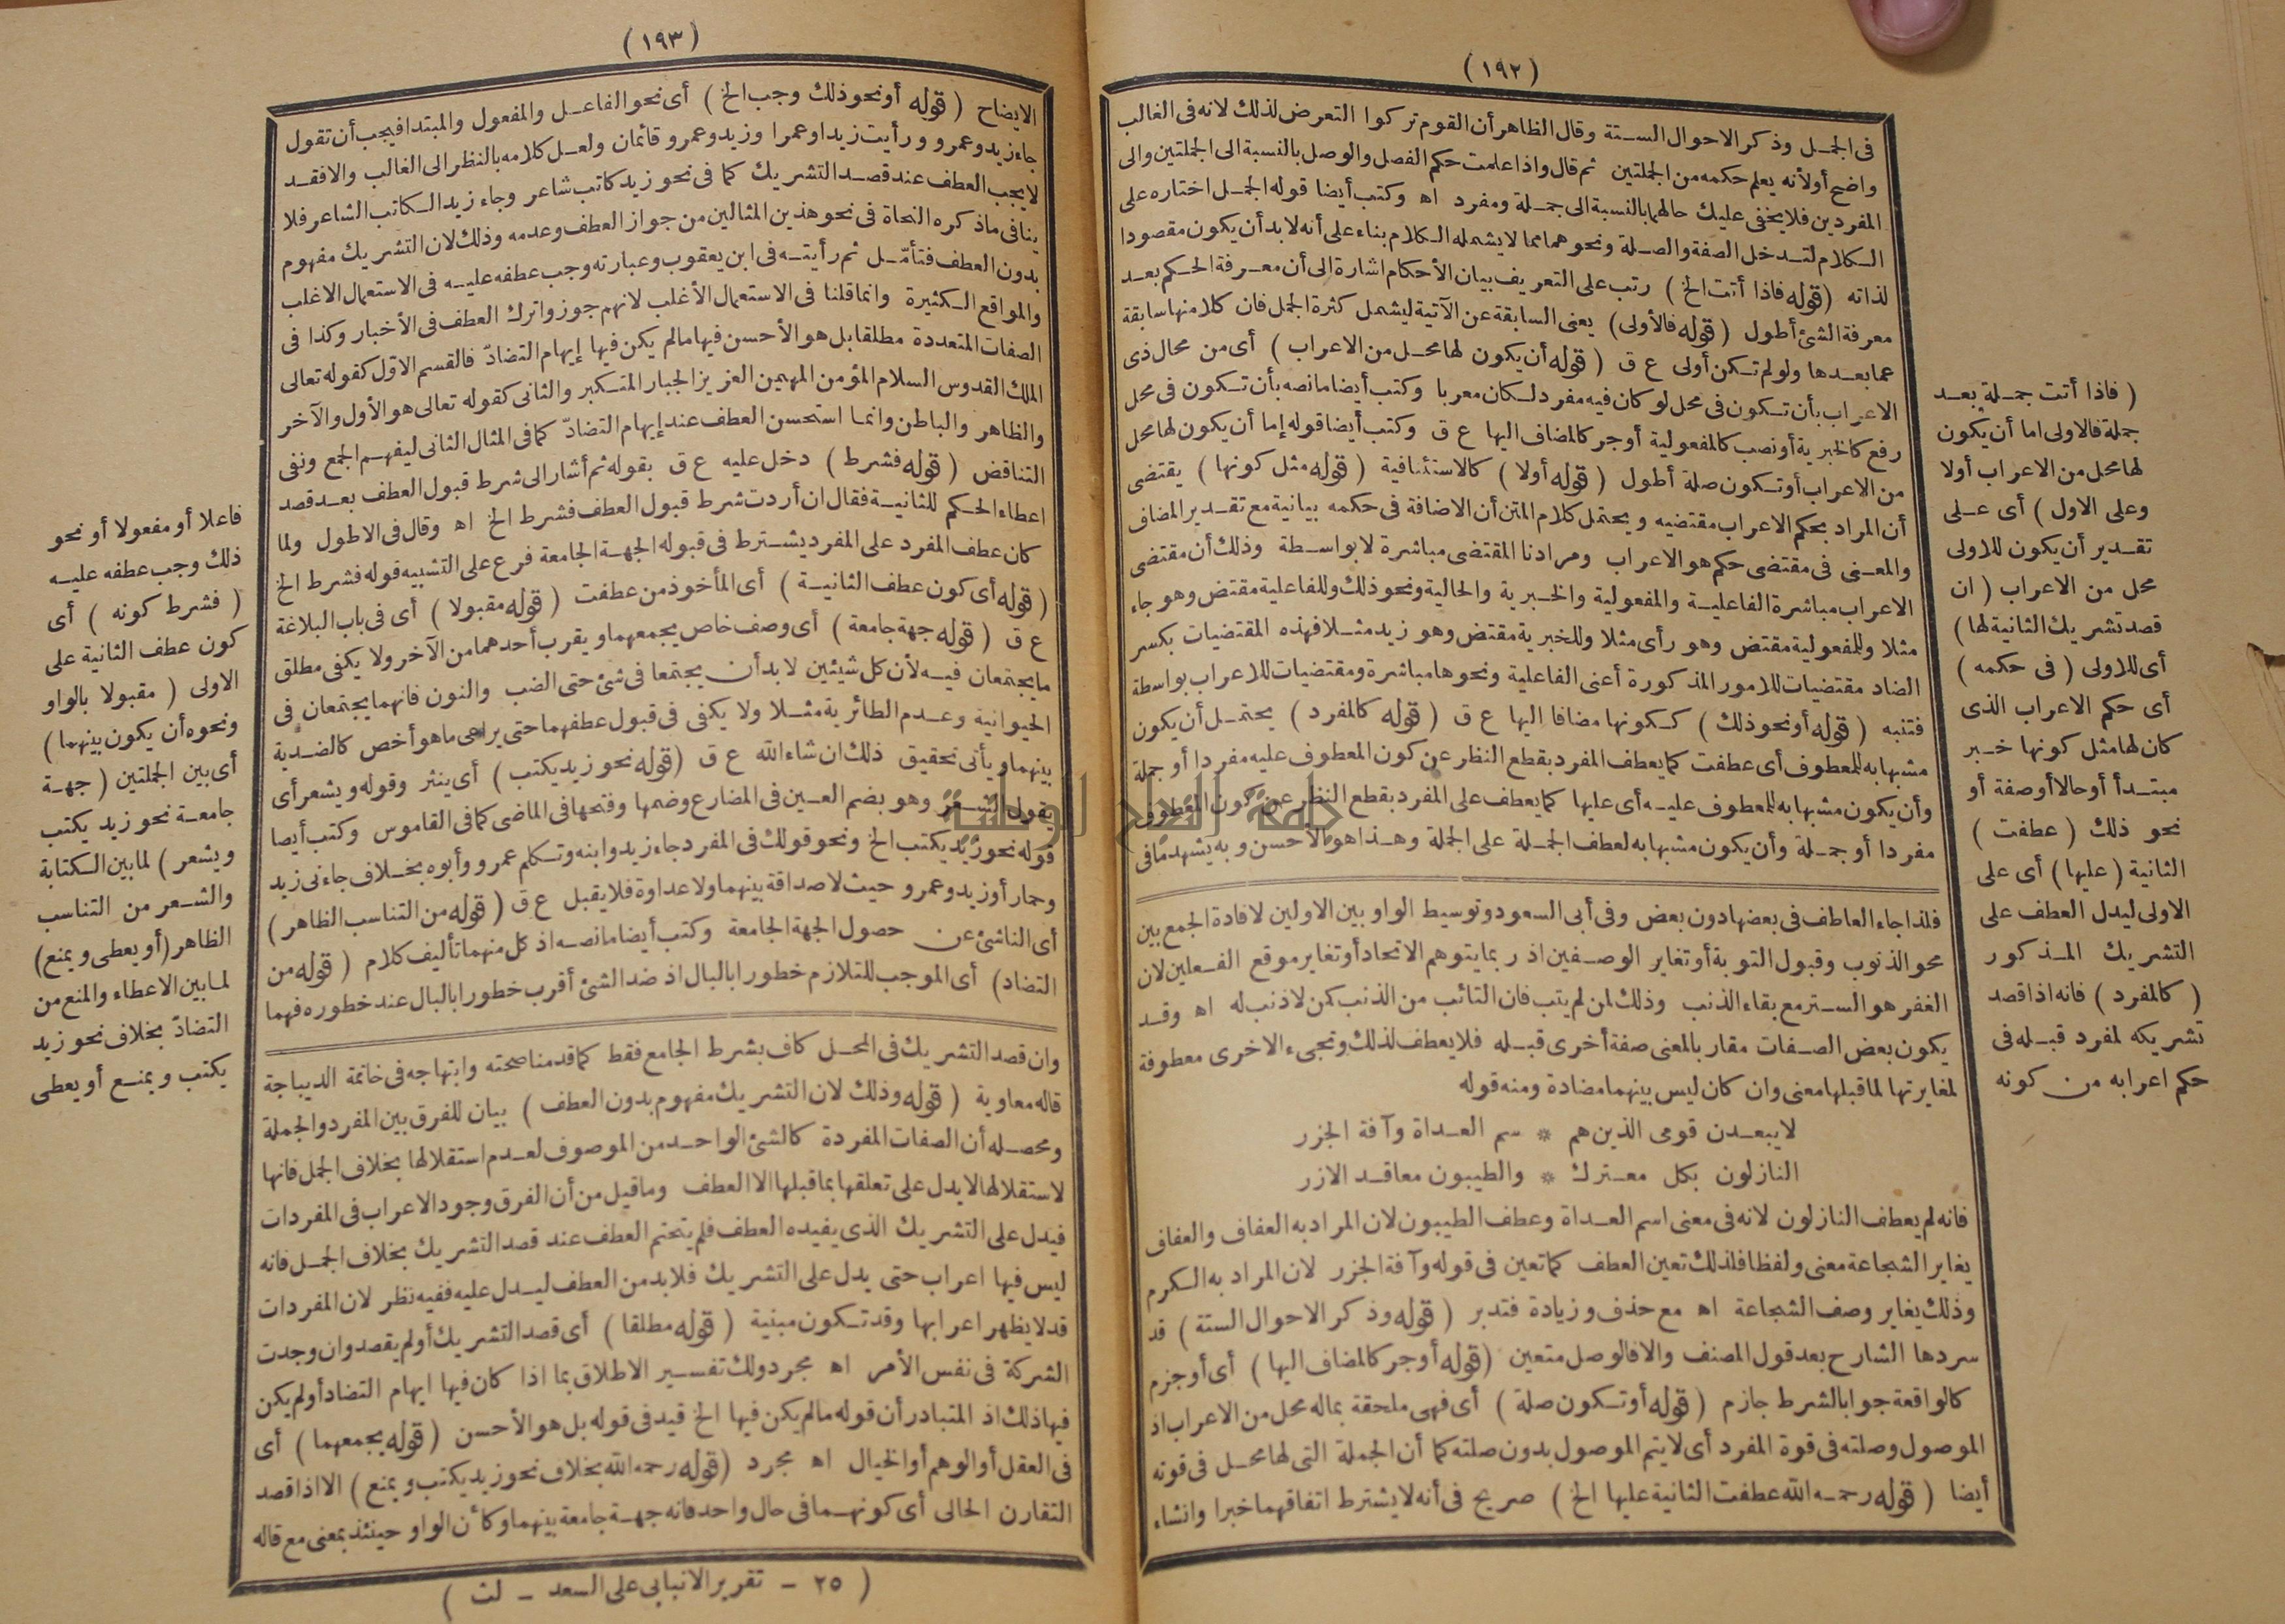 (١٩٢)
فى الجمل وذكر الاحوال الستة وقال الظاهر أن القوم تركوا التعرض لذلك لانه فى الغالب
واضح أولأنه يعلم حكمه من الجملتين ثم قال واذا علمت حكم الفصل والوصل بالنسبة الى الجملتين والى
المفردين فلا يخفى عليك حالهما بالنسبة الى جملة ومفرد اه وكتب أيضا قوله الجمل اختاره على
الكلام لتدخل الصفة والصلة ونحوهما مما لا يشمله الكلام بناء على أنه لابد أن يكون مقصودا
لذاته (قوله فاذا أتت الخ) رتب على التعريف بيان الأحكام اشارة الى أن معرفة الحكم بعد
معرفة الشئ أطول (قوله فالأولى) يعنى السابقة عن الآتية ليشمل كثرة الجمل فان كلا منها سابقة
عما بعدها ولو لم تكن أولى ع ق (قوله أن يكون لها محل من الاعراب) أى من محال ذى
الاعراب بأن تكون فى محل لو كان فيه مفرد لكان معربا وكتب أيضا مانصه بأن تكون فى محل
رفع كالخبرية أو نصب كالمفعولية أو جر كالمضاف اليها ع ق وكتب أيضا قوله إما أن يكون لها محل
من الاعراب أو تكون صلة أطول (قوله أولا) كالاستئنافية (قوله مثل كونها) يقتضى
أن المراد بحكم الاعراب مقتضيه ويحتمل كلام المتن أن الاضافة فى حكمه بيانية مع تقدير المضاف
والمعنى فى مقتضى حكم هو الاعراب ومرادنا المقتضى مباشرة لا بواسطة وذلك أن مقتضى
الاعراب مباشرة الفاعلية والمفعولية والخبرية والحالية ونحو ذلك وللفاعلية مقتض وهو جاء
مثلا وللمفعولية مقتض وهو رأى مثلا وللخبرية مقتض وهو زيد مثلا فهذه المقتضيات بكسر
الضاد مقتضيات للامور المذكورة أعنى الفاعلية ونحوها مباشرة ومقتضيات للاعراب بواسطة
فتنبه (قوله أو نحو ذلك) ككونها مضافا اليها ع ق (قوله كالمفرد) يحتمل أن يكون
مشبها به للمعطوف أى عطفت كما يعطف المفرد بقطع النظر عن كون المعطوف عليه مفردا أو جملة
وأن يكون مشبها به للمعطوف عليه أى عليها كما يعطف على المفرد بقطع النظر عن كون المعطوف
مفردا أو جملة وأن يكون مشبها به لعطف الجملة على الجملة وهذا هو الأحسن وبه يشهد ما فى
(فاذا أتت جملة بعد
جملة فالاولى اما أن يكون
لها محل من الاعراب أولا
وعلى الاول) أى على
تقدير أن يكون للاولى
محل من الاعراب (ان
قصد تشريك الثانية لها)
أى للاولى (فى حكمه)
أى حكم الاعراب الذى
كان لها مثل كونها خبر
مبتدأ أو حالا أو صفة أو
نحو ذلك (عطفت)
الثانية (عليها) أى على
الاولى ليدل العطف على
التشريك المذكور
(كالمفرد) فانه اذا قصد
تشريكه لمفرد قبله فى
حكم اعرابه من كونه
فلذا جاء العاطف فى بعضها دون بعض وفى أبى السعود وتوسيط الواو بين الاولين لافادة الجمع بين
محو الذنوب وقبول التوبة أو تغاير الوصفين اذ ربما يتوهم الاتحاد أو تغاير موقع الفعلين لان
الغفر هو الستر مع بقاء الذنب وذلك لمن لم يتب فان التائب من الذنب كمن لا ذنب له اه وقد
يكون بعض الصفات مقار بالمعنى صفة أخرى قبله فلا يعطف لذلك وتجىء الاخرى معطوفة
لمغايرتها لما قبلها معنى وان كان ليس بينهما مضادة ومنه قوله
لا يبعدن قومى الذين هم * سم العداة وآفة الجزر
النازلون بكل معترك * والطيبون معاقد الازر
فانه لم يعطف النازلون لانه فى معنى اسم العداة وعطف الطيبون لان المراد به العفاف والعفاف
يغاير الشجاعة معنى ولفظا فلذلك تعين العطف كما تعين فى قوله وآفة الجزر لان المراد به الكرم
وذلك يغاير وصف الشجاعة اه مع حذف وزيادة فتدبر (قوله وذكر الاحوال الستة) قد
سردها الشارح بعد قول المصنف والا فالوصل متعين (قوله أو جر كالمضاف اليها) أى أو جزم
كالواقعة جوابا لشرط جازم (قوله أو تكون صلة) أى فهى ملحقة بماله محل من الاعراب اذ
الموصول وصلته فى قوة المفرد أى لا يتم الموصول بدون صلته كما أن الجملة التى لها محل فى قوته
أيضا (قوله رحمه الله عطفت الثانية عليها الخ) صريح فى أنه لا يشترط اتفاقهما خبرا وانشاء
(١٩٣)
الايضاح (قوله أو نحو ذلك وجب الخ) أى نحو الفاعل والمفعول والمبتدا فيجب أن تقول
جاء زيد وعمرو ورأيت زيدا وعمرا وزيد وعمرو قائمان ولعل كلامه بالنظر الى الغالب والا فقد
لا يجب العطف عند قصد التشريك كما فى نحو زيد كاتب شاعر وجاء زيد الكاتب الشاعر فلا
ينافى ما ذكره النحاة فى نحو هذين المثالين من جواز العطف وعدمه وذلك لان التشريك مفهوم
بدون العطف فتأمل ثم رأيته فى ابن يعقوب وعبارته وجب عطفه عليه فى الاستعمال الاغلب
والمواقع الكثيرة وانما قلنا فى الاستعمال الأغلب لانهم جوزوا ترك العطف فى الأخبار وكذا فى
الصفات المتعددة مطلقا بل هو الأحسن فيها ما لم يكن فيها إيهام التضادّ فالقسم الاوّل كقوله تعالى
الملك القدوس السلام المؤمن المهيمن العزيز الجبار المتكبر والثانى كقوله تعالى هو الأول والآخر
والظاهر والباطن وانما استحسن العطف عند إيهام التضادّ كما فى المثال الثانى ليفهم الجمع ونفى
التناقض (قوله فشرط) دخل عليه ع ق بقوله ثم أشار الى شرط قبول العطف بعد قصد
اعطاء الحكم للثانية فقال ان أردت شرط قبول العطف فشرط الخ اه وقال فى الاطول ولما
كان عطف المفرد على المفرد يشترط فى قبوله الجهة الجامعة فرع على التشبيه قوله فشرط الخ
(قوله أى كون عطف الثانية) أى المأخوذ من عطفت (قوله مقبولا) أى فى باب البلاغة
ع ق (قوله جهة جامعة) أى وصف خاص يجمعهما ويقرب أحدهما من الآخر ولا يكفى مطلق
ما يجتمعان فيه لأن كل شيئين لابد أن يجتمعا فى شئ حتى الضب والنون فانهما يجتمعان فى
الحيوانية وعدم الطائرية مثلا ولا يكفى فى قبول عطفهما حتى يراعى ما هو أخص كالضدية
بينهما ويأتى تحقيق ذلك ان شاء الله ع ق (قوله نحو زيد يكتب) أى ينثر وقوله ويشعر أى
يقول الشعر وهو بضم العين فى المضارع وضمها وفتحها فى الماضى كما فى القاموس وكتب أيضا
قوله نحو زيد يكتب الخ ونحو قولك فى المفرد جاء زيد وابنه وتكلم عمرو وأبوه بخلاف جاءنى زيد
وحمار أو زيد وعمرو حيث لا صداقة بينهما ولا عداوة فلا يقبل ع ق (قوله من التناسب الظاهر)
أى الناشئ عن حصول الجهة الجامعة وكتب أيضا مانصه اذ كل منهما تأليف كلام (قوله من
التضاد) أى الموجب للتلازم خطورا بالبال اذ ضد الشئ أقرب خطورا بالبال عند خطوره فهما
فاعلا أو مفعولا أو نحو
ذلك وجب عطفه عليه
(فشرط كونه) أى
كون عطف الثانية على
الاولى (مقبولا بالواو
ونحوه أن يكون بينهما)
أى بين الجملتين (جهة
جامعة نحو زيد يكتب
ويشعر) لما بين الكتابة
والشعر من التناسب
الظاهر (أو يعطى ويمنع)
لما بين الاعطاء والمنع من
التضادّ بخلاف نحو زيد
يكتب ويمنع أو يعطى
وان قصد التشريك فى المحل كاف بشرط الجامع فقط كما قدمنا صحته وابتهاجه فى خاتمة الديباجة
قاله معاوية (قوله وذلك لان التشريك مفهوم بدون العطف) بيان للفرق بين المفرد والجملة
ومحصله أن الصفات المفردة كالشئ الواحد من الموصوف لعدم استقلالها بخلاف الجمل فانها
لاستقلالها لا يدل على تعلقها بما قبلها الا العطف وما قيل من أن الفرق وجود الاعراب فى المفردات
فيدل على التشريك الذى يفيده العطف فلم يتحتم العطف عند قصد التشريك بخلاف الجمل فانه
ليس فيها اعراب حتى يدل على التشريك فلابد من العطف ليدل عليه ففيه نظر لان المفردات
قد لا يظهر اعرابها وقد تكون مبنية (قوله مطلقا) أى قصد التشريك أو لم يقصد وان وجدت
الشركة فى نفس الأمر اه مجرد ولك تفسير الاطلاق بما اذا كان فيها ايهام التضاد أو لم يكن
فيها ذلك اذ المتبادر أن قوله ما لم يكن فيها الخ قيد فى قوله بل هو الأحسن (قوله يجمعهما) أى
فى العقل أو الوهم أو الخيال اه مجرد (قوله رحمه الله بخلاف نحو زيد يكتب ويمنع) الا اذا قصد
التقارن الحالى أى كونهما فى حال واحد فانه جهة جامعة بينهما وكأن الواو حينئذ بمعنى مع قاله
(٢٥ - تقرير الانبابى على السعد - لث)